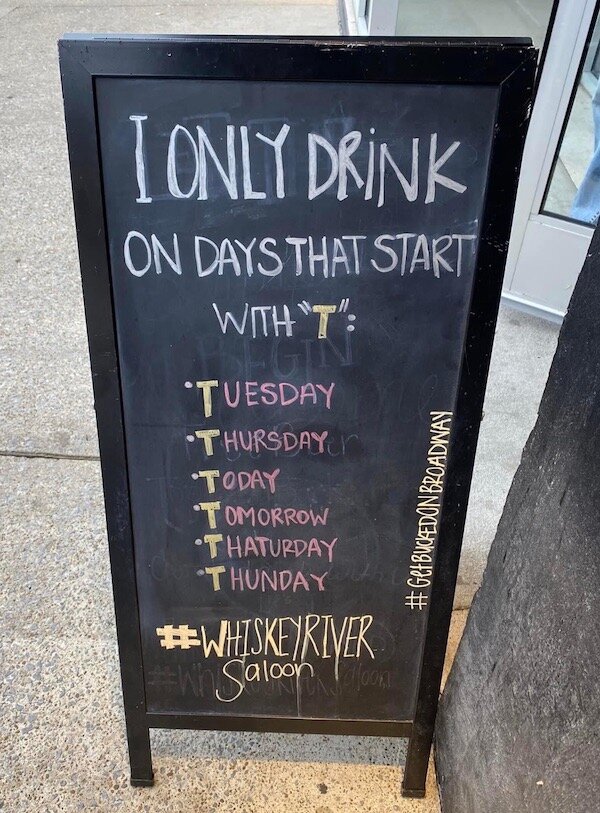 I ONLY DRINK
ON DAYS THAT START
WITH "T":
• TUESDAY
• THURSDAY
• TODAY
• TOMORROW
• THATURDAY
• THUNDAY
#WHISKEYRIVER
Saloon
#GETBUCKEDONBROADWAY